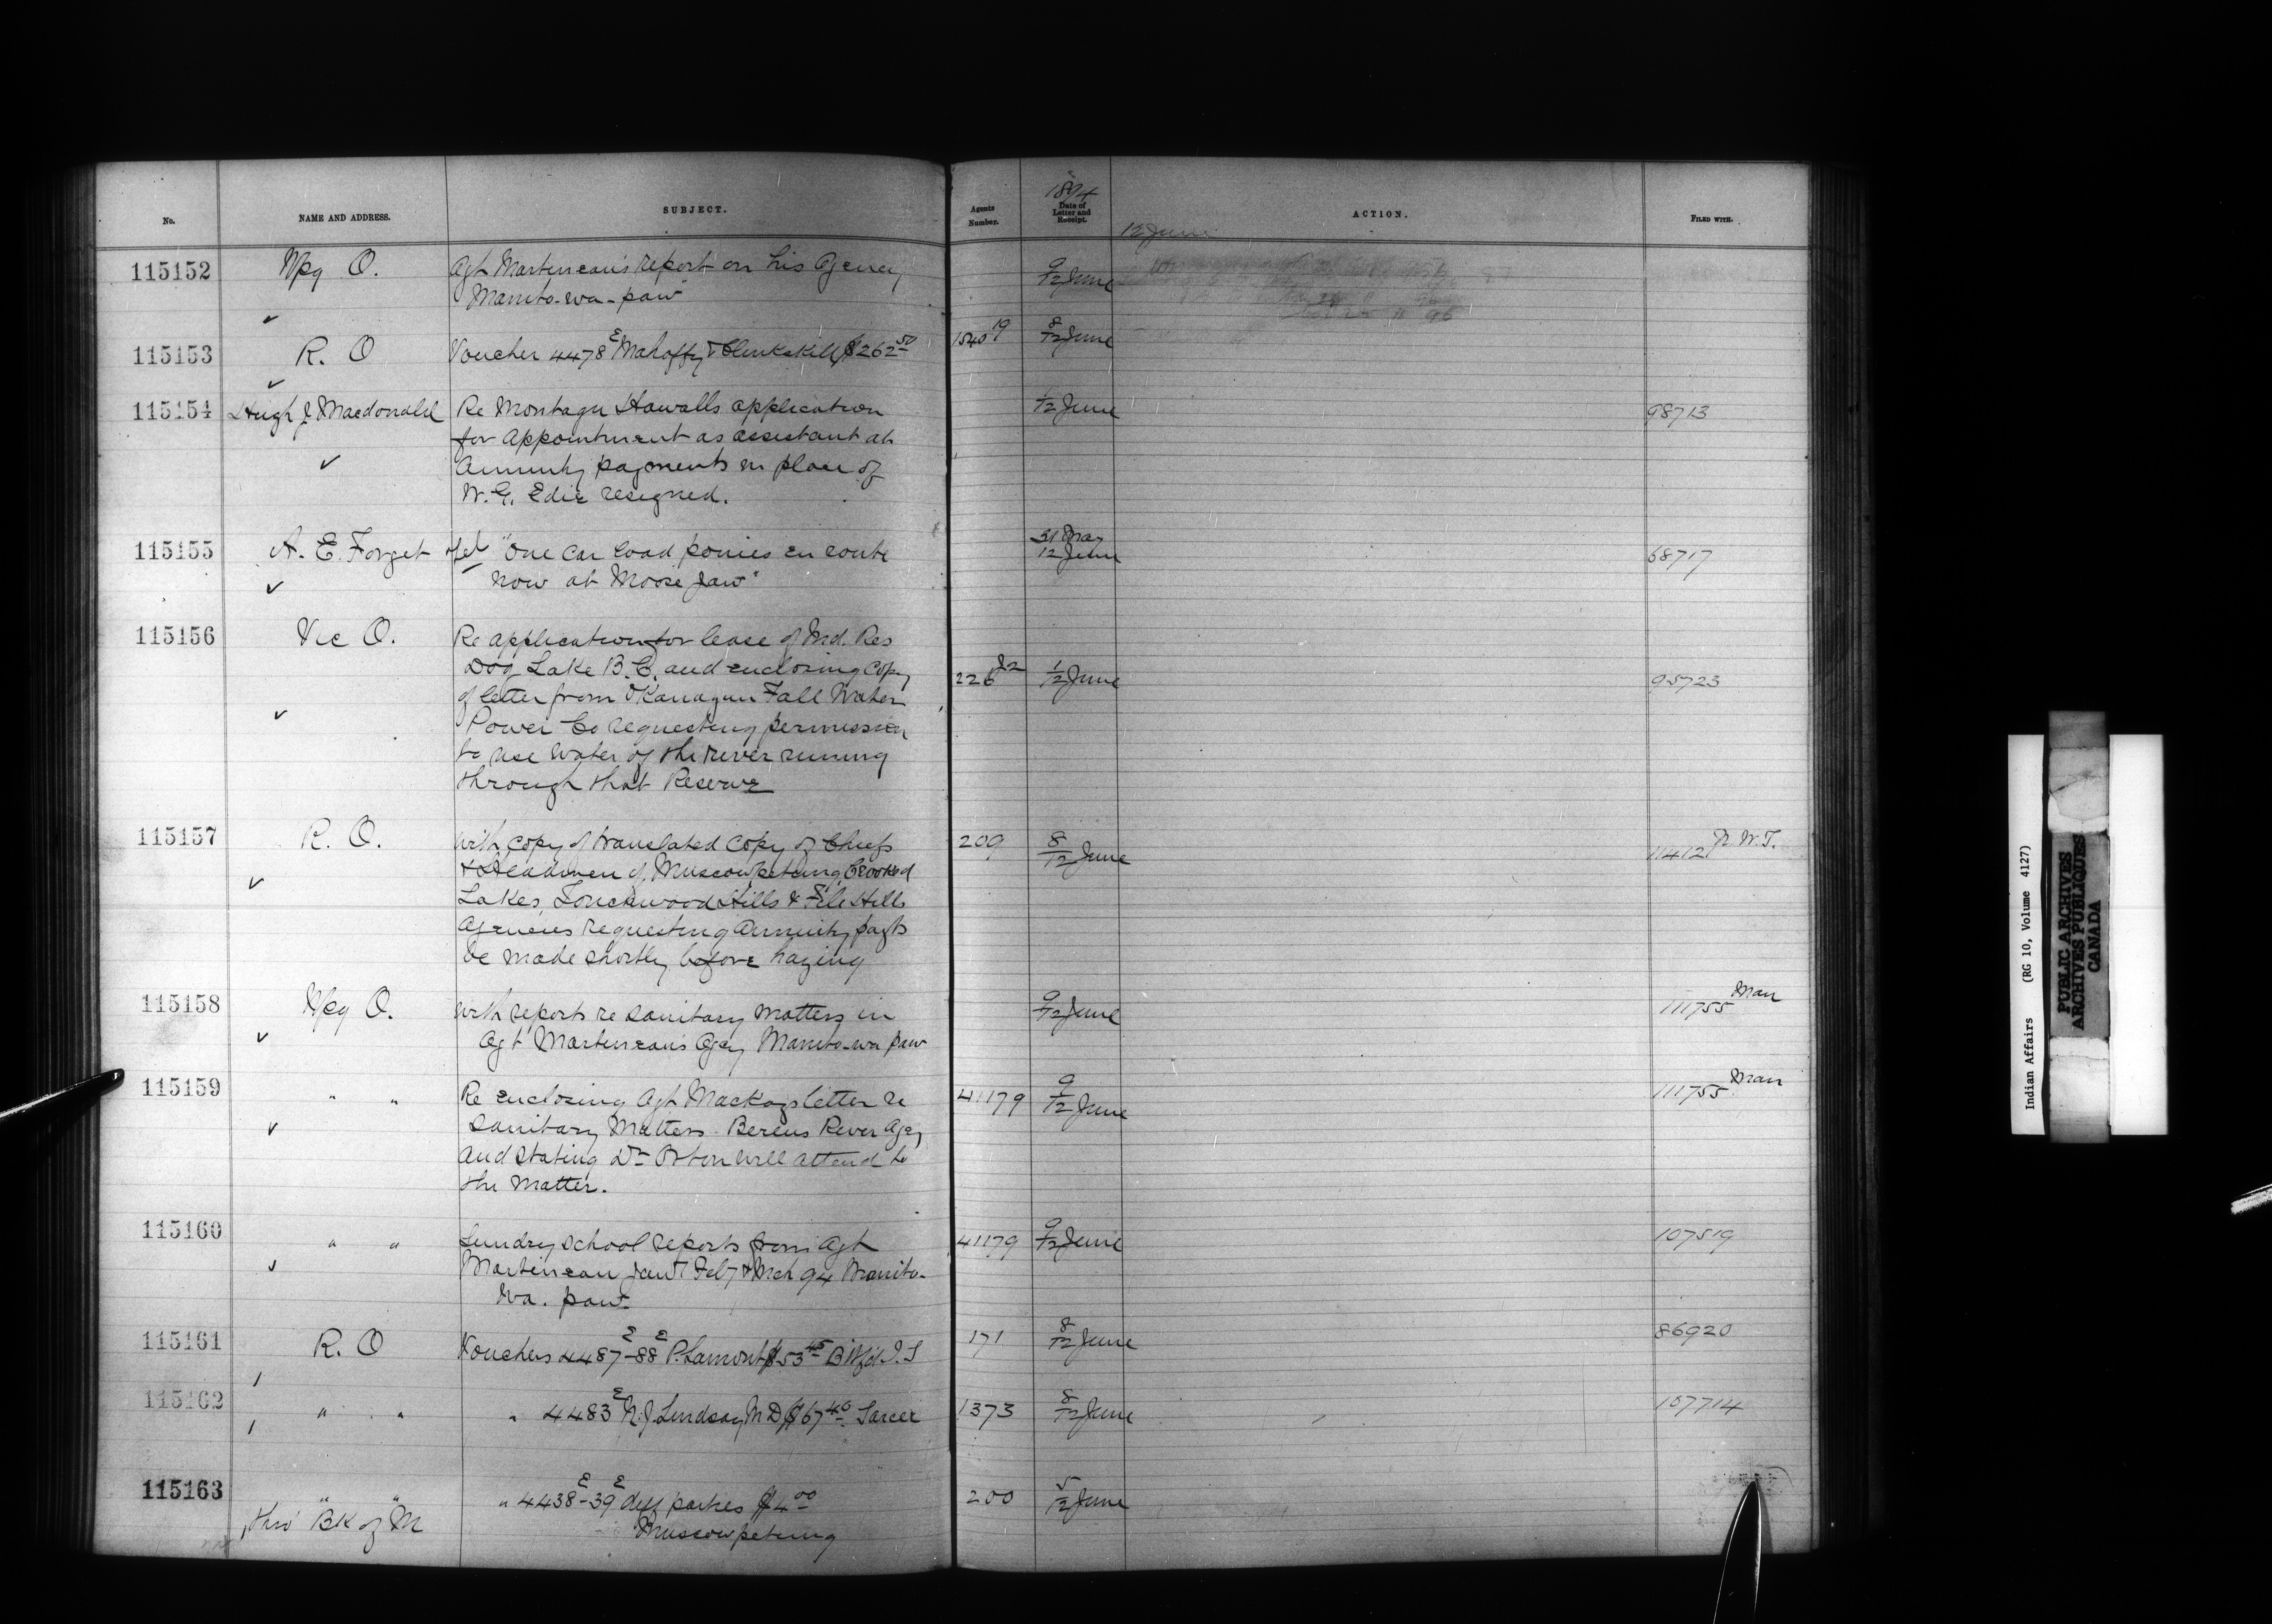 No. NAME AND ADDRESS. SUBJECT. Agents Number. 1894 Date of Letter and Receipt. ACTION. FILED WITH.
12 June
115152 Wpg O. Agt Martineau's report on his Agency 9/12 June
Manito-wa-paw
115153 R. O Voucher 4478 E Mahaffy & Clinkskill $262 50 1540 19 8/12 June
115154 Hugh J Macdonald Re Montagu Hawalls application 1/12 June 98713
for appointment as assistant at
Annuity payments in place of
W. G. Edie resigned.
115155 A. E. Forget tel "One Car load ponies en route 31 May 12 June 68717
now at Moose Jaw"
115156 Vic O. Re application for lease of Ind. Res
Dog Lake B.C. and enclosing Copy 226 1/12 June 95723
of letter from OKanagan Fall Water
Power Co requesting permission
to use water of the river runing
through that Reserve
115157 R. O. with copy of translated Copy of Chiefs 209 8/12 June 11412 N.W.T.
& Headmen of Muscowpetung, Crooked
Lakes, Touchwood Hills & File Hills
Agencies requesting Annuity payts
be made shortly before haying
115158 Wpg O. with reports re sanitary matters in 9/12 June 111755 Man
Agt Martineaus Agcy Manito-wa paw
115159 " " Re enclosing Agt Mackays letter re 41179 9/12 June 111755 Man
Sanitary Matters Berens River Agcy
and stating Dr Orton will attend to
the matter.
115160 " " Sundry school reports from Agt 41179 9/12 June 107519
Martineau Jany Feby & Mch 94 Manito-
wa. paw
115161 R. O Vouchers 4487 E-88 E P. Lamont $53 45 B'tlf'd I. S 171 8/12 June 86920
115162 " " " 4483 E N. J Lindsay M D $67 40 Sarcee 1373 8/12 June 107714
115163 " " " 4438 E-39 E diff parties $4 00 200 5/12 June
thro' BK of M Muscowpetung
Indian Affairs (RG 10, Volume 4127)
PUBLIC ARCHIVES
ARCHIVES PUBLIQUES
CANADA